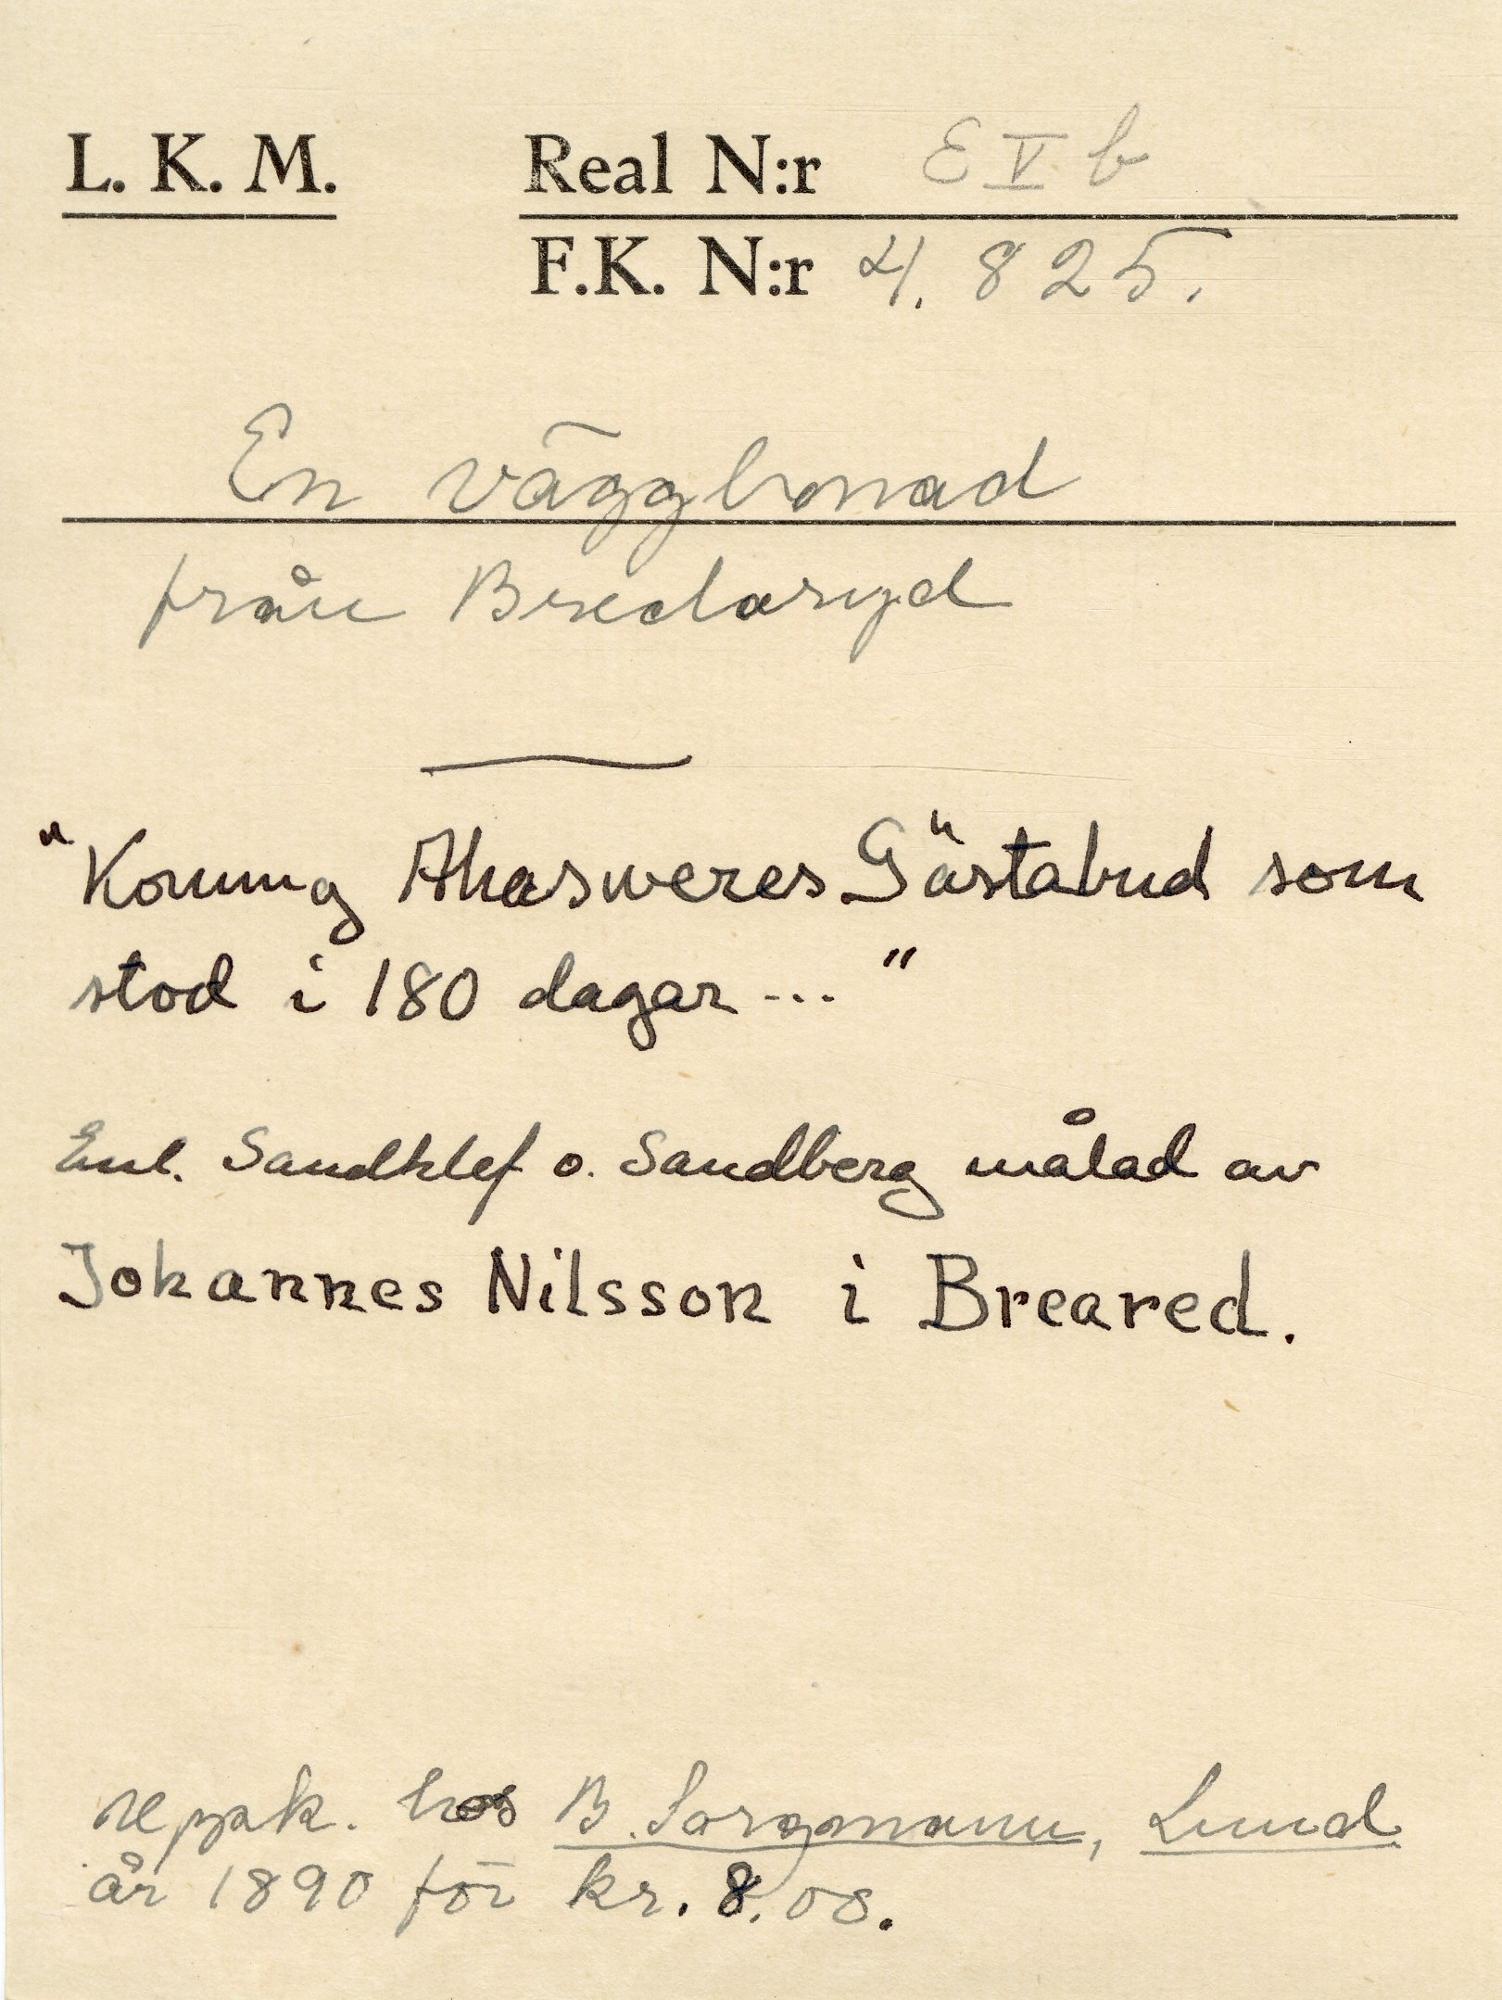 L. K. M. Real N:r E V b
F.K. N:r 4.825.
En väggbonad
från Bredaryd
"Konung Ahasweres Gästabud som
stod i 180 dagar..."
Enl. Sandklef o. Sandberg målad av
Johannes Nilsson i Breared.
hos B. Jorgmann, Lund
år 1890 för kr. 8.08.